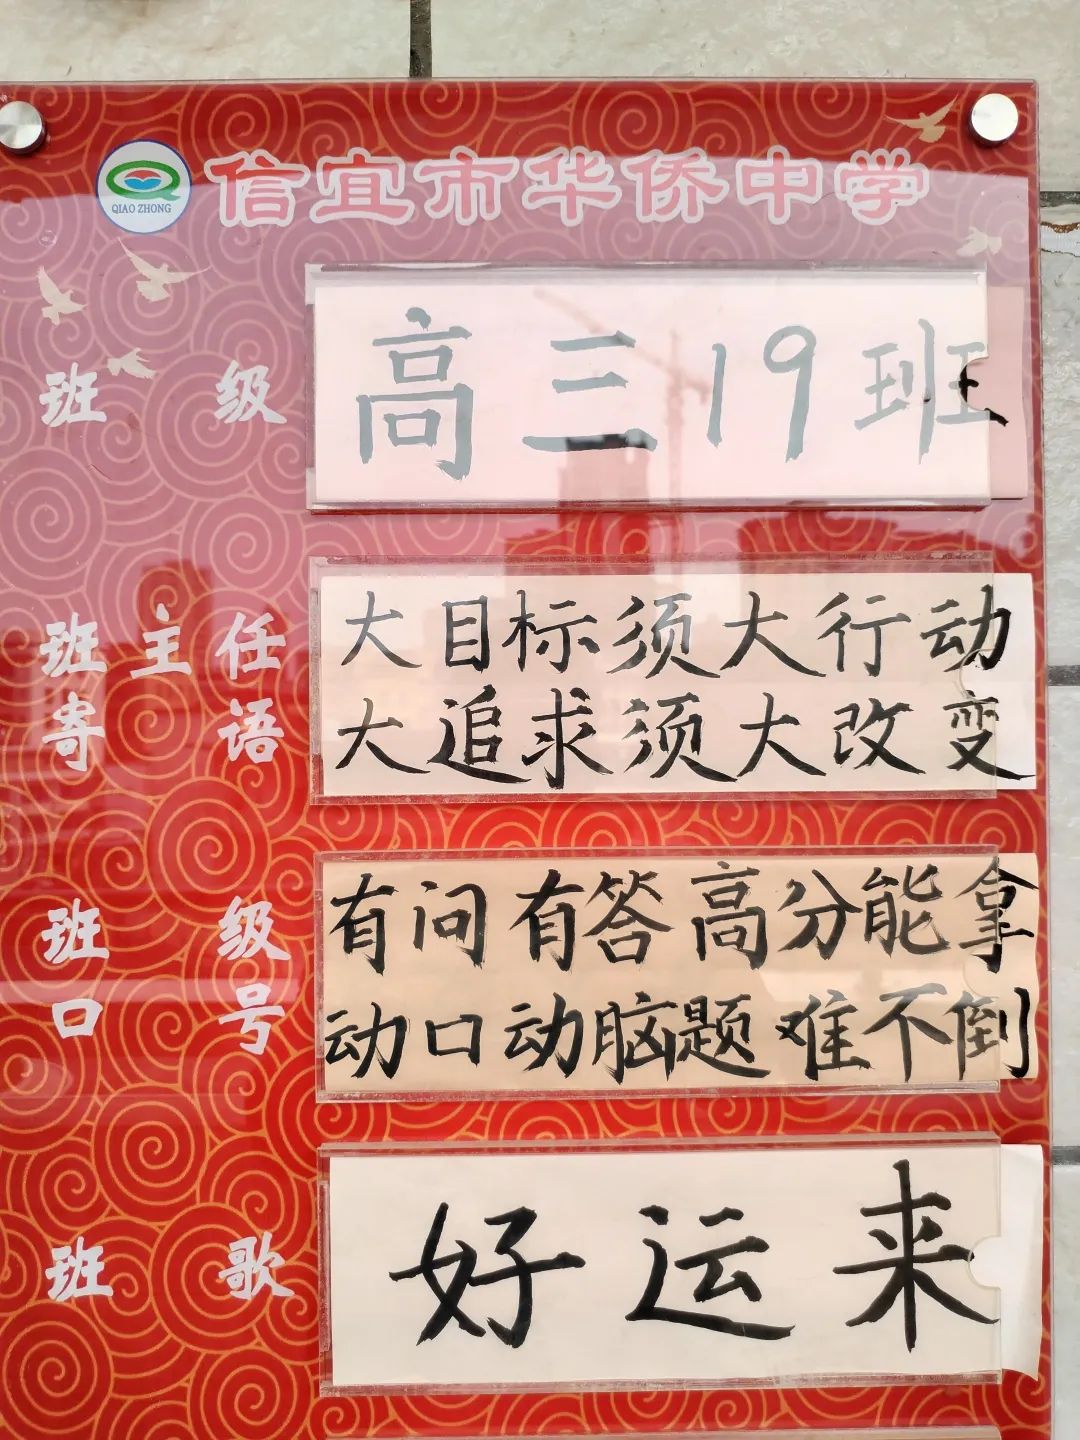 QIAO ZHONG
信宜市华侨中学
班级
高三19班
班主任
寄语
大目标须大行动
大追求须大改变
班级
口号
有问有答高分能拿
动口动脑题难不倒
班歌
好运来